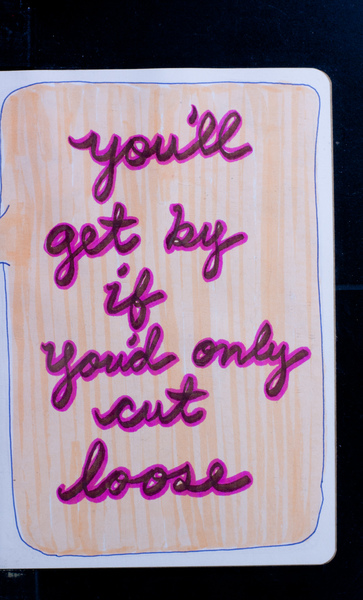 you'll
get by
if
you'd only
cut
loose